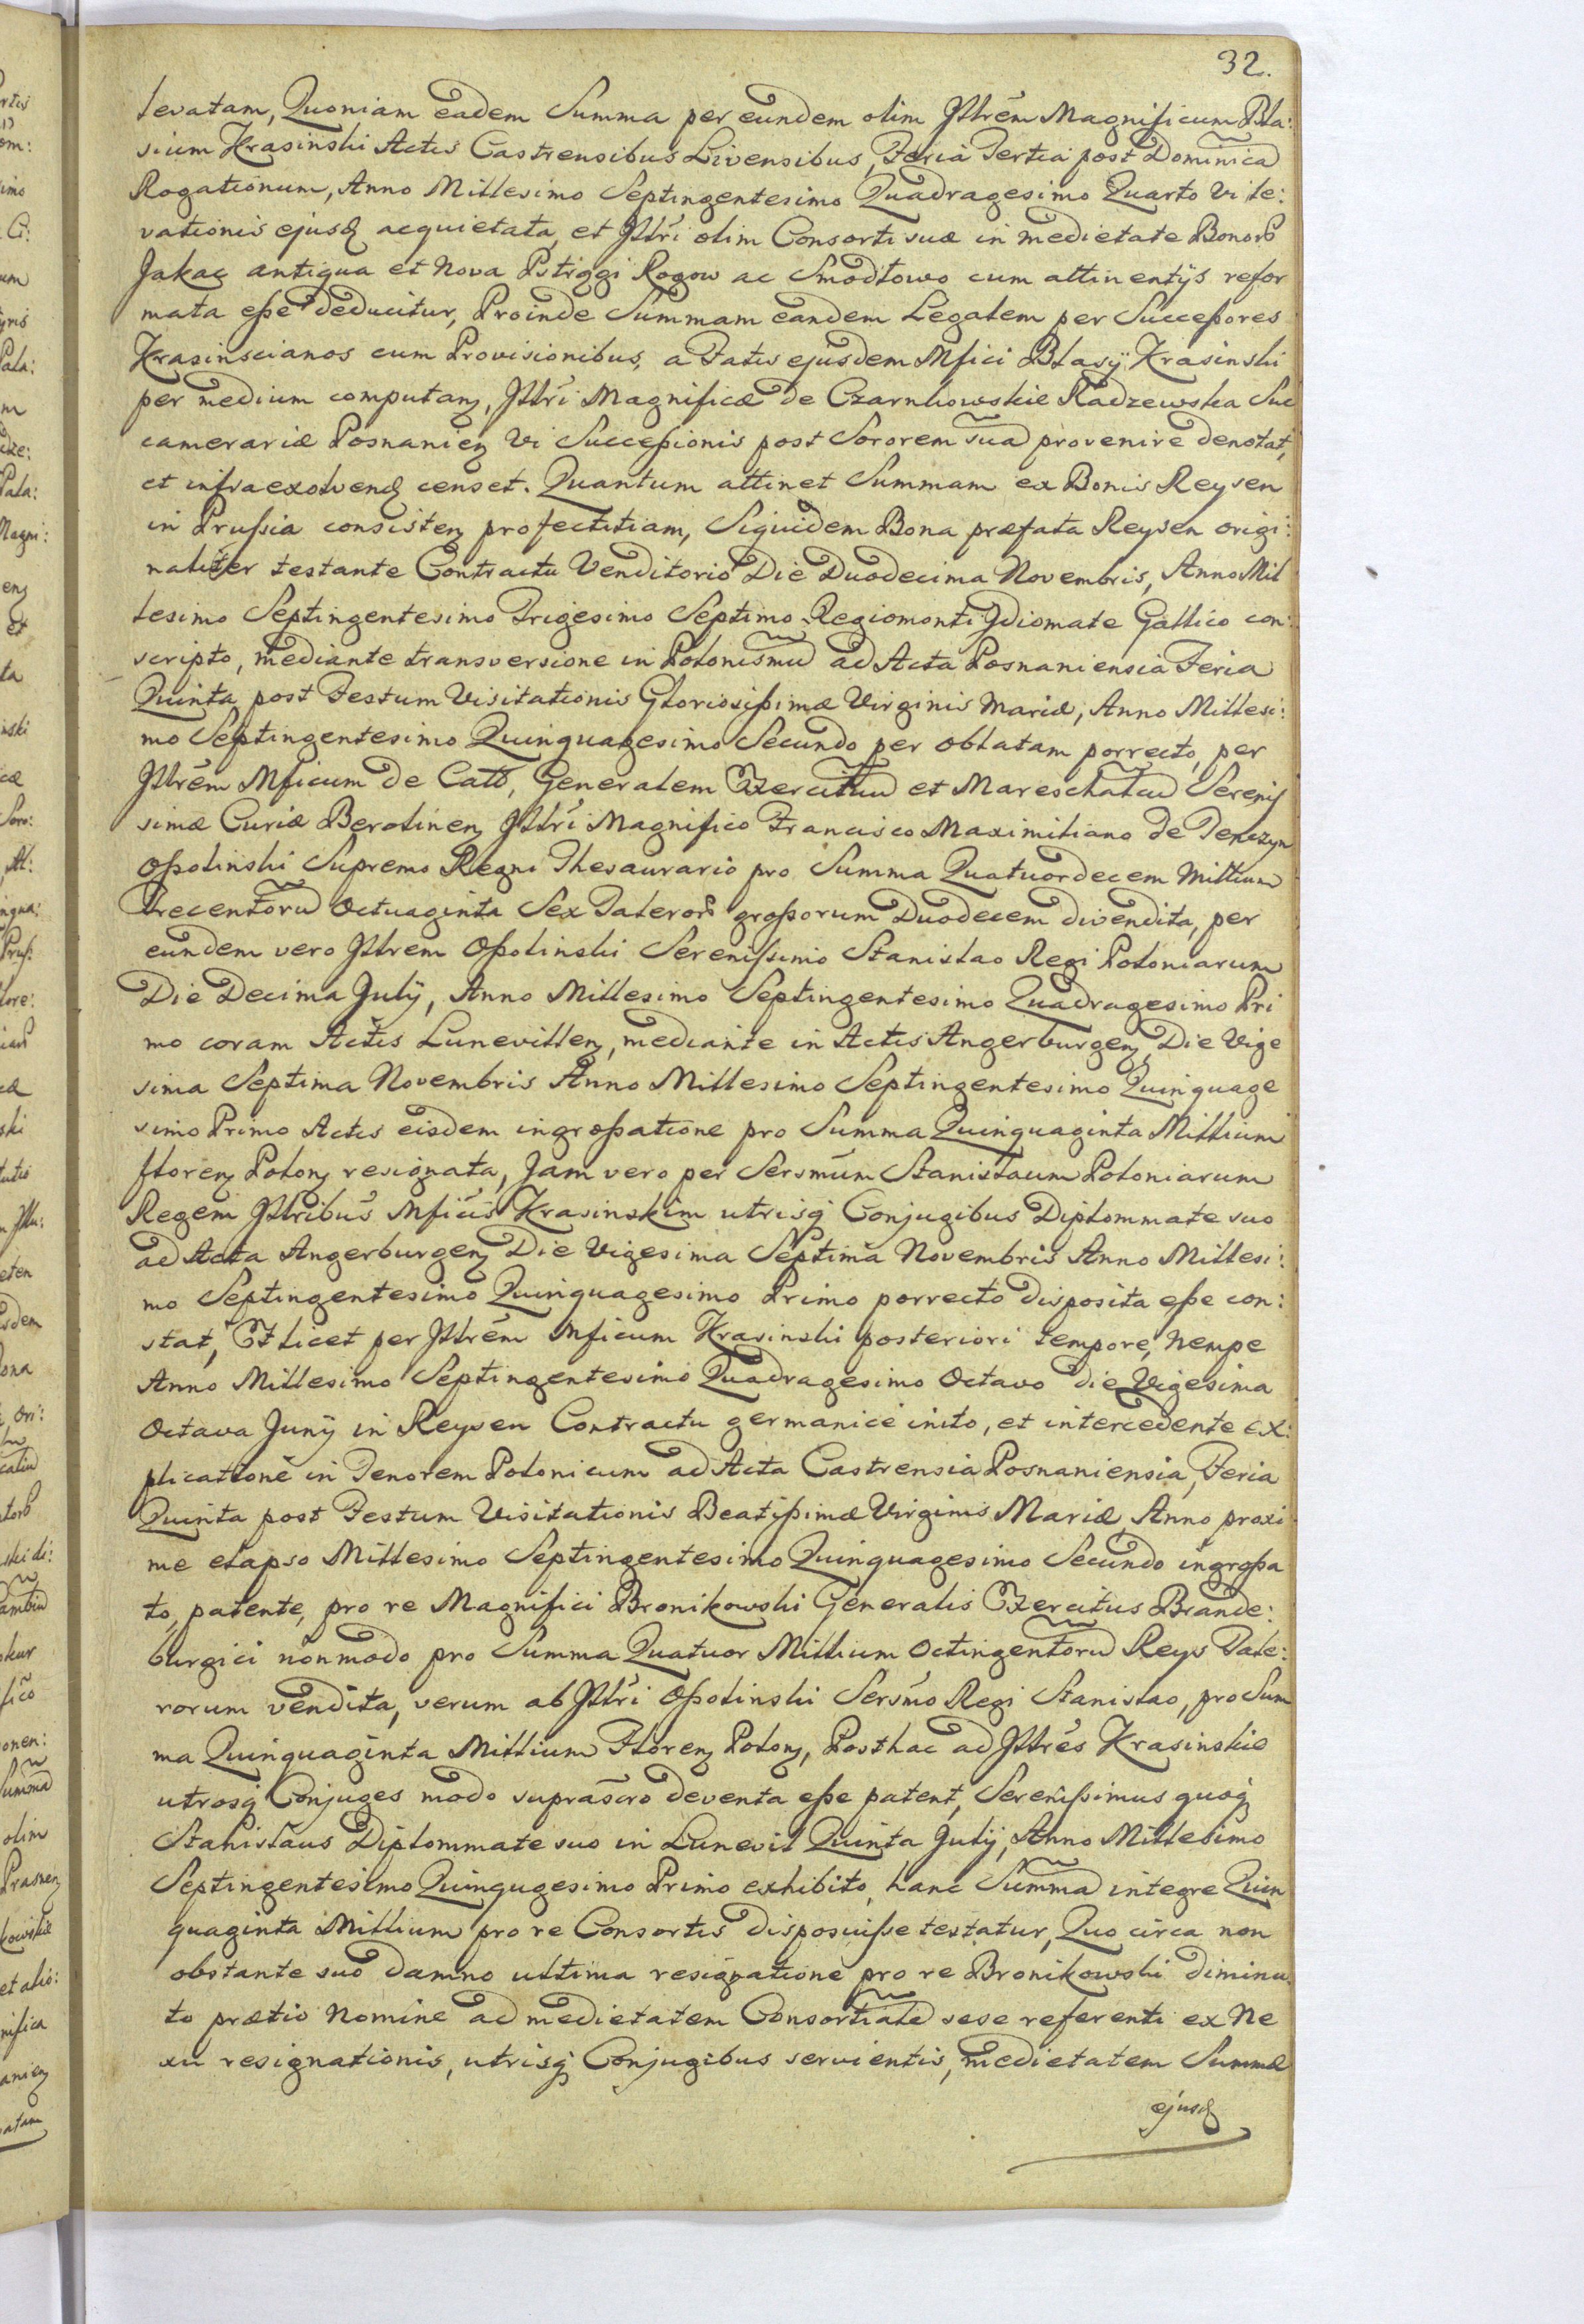 32.
levatam, Quoniam eadem Summa per eundem olim Jllrēm Magnificum Bla:
sium Krasinski Actis Castrensibus Livensibus, Feria Tertia post Dominicã
Rogationum, Anno Millesimo Septingentesimo Quadragesimo Quarto Vi le:
vationis ejusd acquietata, et Jllri olim Consorti suæ in medietate Bonorū
Jakac antiqua et Nova Rogow ac cum attinentijs refor
mata eße deducitur, Proinde Summam eandem Legalem per Succeßores
Krasinscianos cum Provisionibus, a Fatis ejusdem Mfici Blasij Krasinski
per medium computanꝫ, Jllri Magnificæ de Czarnkowskie Radzewska Suc
camerariæ Posnanienꝫ Vi Succeßionis post Sororem suã provenire denotat,
et infra exolvend censet. Quantum attinet Summam ex Bonis Reysen
in Prußia consistenꝫ profectitiam, Siquidem Bona præfata Reysen origi:
naliter testante Contractu Venditorio Die Duodecima Novembris, Anno Mil
lesimo Septingentesimo Trigesimo Septimo Regiomonti Jdiomate Gallico con:
scripto, mediante transversione in Polonismũ ad Acta Posnaniensia Feria
Quinta post Festum Visitationis Gloriosißimæ Virginis Mariæ, Anno Millesi:
mo Septingentesimo Quinquagesimo Secundo per oblatam porrecto, per
Jllrēm Mficum de Catt, Generalem Exercituũ et Mareschalcũ Sereniſ
simæ Curiæ Berolinenꝫ Jllri Magnifico Francisco Maximiliano de Tenczyn
Oßolinski Supremo Regni Thesaurario pro Summa Quatuordecem Millium
Trecentorũ Octuaginta Sex Talerorū großorum Duodecem divendita, per
eundem vero Jllrem Oßolinski Sereniſsimo Stanislao Regi Poloniarum
Die Decima Julij, Anno Millesimo Septingentesimo Quadragesimo Pri
mo coram Actis Lunevillenꝫ, mediante in Actis Angerburgenꝫ Die Vige
sima Septima Novembris Anno Millesimo Septingentesimo Quinquage
simo Primo Actis eisdem ingroßatione pro Summa Quinquaginta Millium
florenꝫ Polonꝫ resignata, Jam vero per Sersmūm Stanislaum Poloniarum
Regem Jllribus Mficis Krasinskim utrisq Conjugibus Diplommate suo
ad Acta Angerburgenꝫ Die Vigesima Septima Novembris Anno Millesi:
mo Septingentesimo Quinquagesimo Primo porrecto disposita eße con:
stat, Et licet per Jllrēm Mficum Krasinski posteriori tempore, Nempe
Anno Millesimo Septingentesimo Quadragesimo Octavo die Vigesima
Octava Junij in Reysen Contractu germanice inito, et intercedente ex:
plicatione in Tenorem Polonicum ad Acta Castrensia Posnaniensia, Feria
Quinta post Festum Visitationis Beatißimæ Virginis Mariæ Anno proxi
me elapso Millesimo Septingentesimo Quinquagesimo Secundo ingroßa
to, patente, pro re Magnifici Bronikowski Generalis Exercitus Brande:
burgici nonmodo pro Summa Quatuor Millium Octingentorũ Reys Tale:
rorum vendita, verum ab Jllri Oßolinski Sersmo Regi Stanislao, pro Sum
ma Quinquaginta Millium Florenꝫ Polonꝫ, Posthac ad Jllres Krasinskie
utrosq Conjuges modo suprascro deventa eße patent, Serenißimus quoq
Stanislaus Diplommate suo in Lunevil Quinta Julij, Anno Millesimo
Septingentesimo Quinqugesimo Primo exhibito, hanc Summã integre Quin
quaginta Millium pro re Consortis disposuiſse testatur, Quo circa non
obstante suo damno ultima resignatione pro re Bronikowski diminu:
to prætio Nomine ad medietatem Consortialẽ sese referenti ex Ne
xu resignationis, utrisq Conjugibus servientis, medietatem Summæ
ejusd